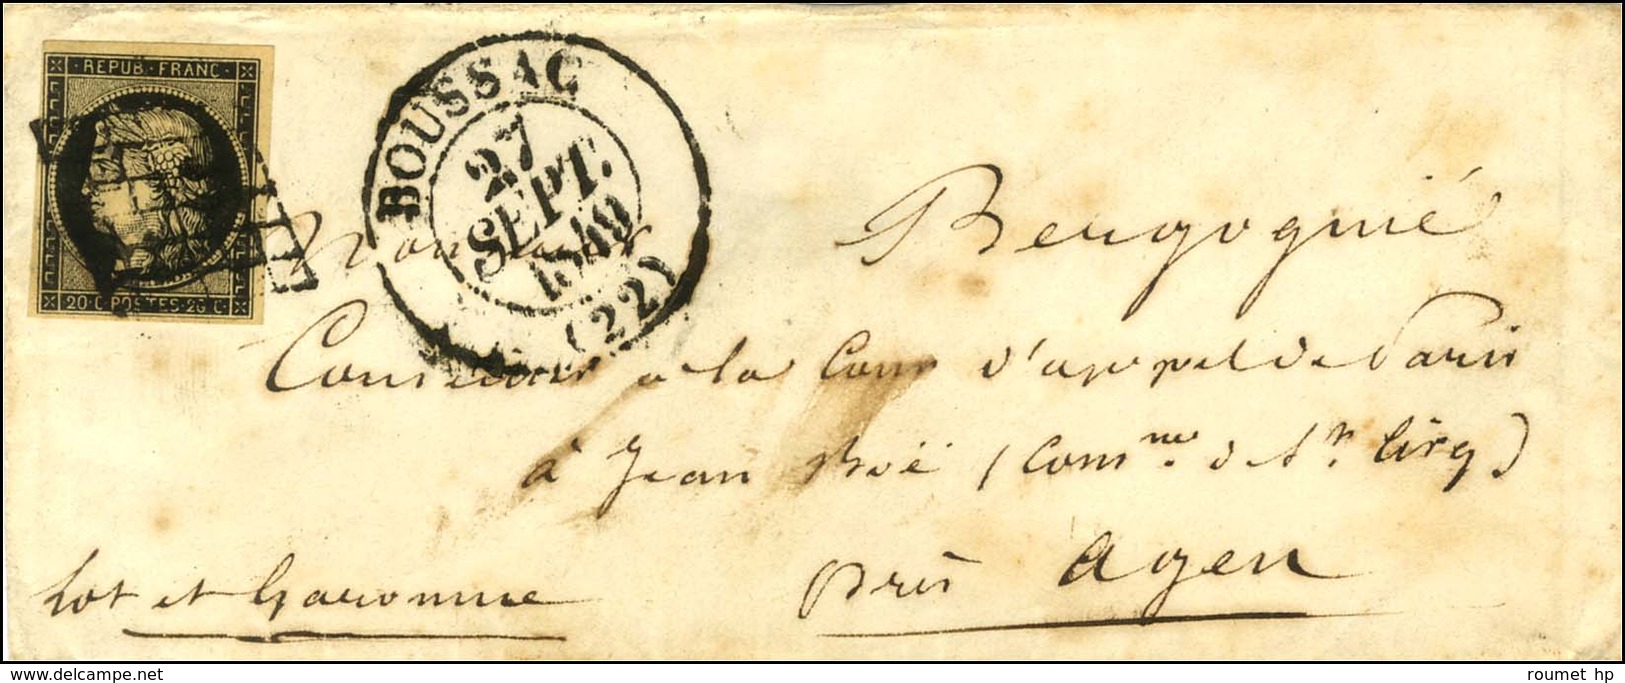 REPUB · FRANC ·
20 · C · POSTES · 20 C ·
BOUSSAC
27
SEPT.
1849
(22)
Monsieur Bergognié
Conseiller à la Cour d'appel de Paris
à Jean (Comne de St. Cirq)
près Agen
Lot et Garonne
roumet hp